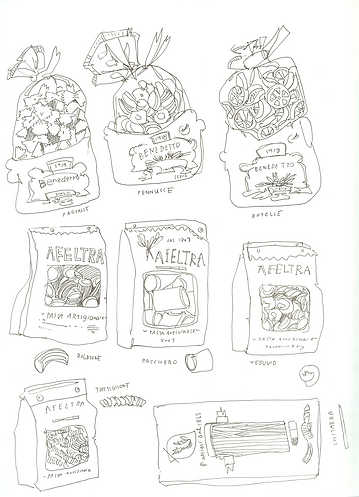 1919
Benedetto
FARFALLE
1919
BENEDETTO
PENNUCCE
1919
BENEDETTO
ROTELLE
AFELTRA
PASTA ARTIGIANALE
RIGATONI
DAL 1848
AFELTRA
PASTA ARTIGIANALE
500g
PACCHERO
AFELTRA
PASTA ARTIGIANALE
VESUVIO
AFELTRA
PASTA ARTIGIANALE
TORTIGLIONI
CHITARRA